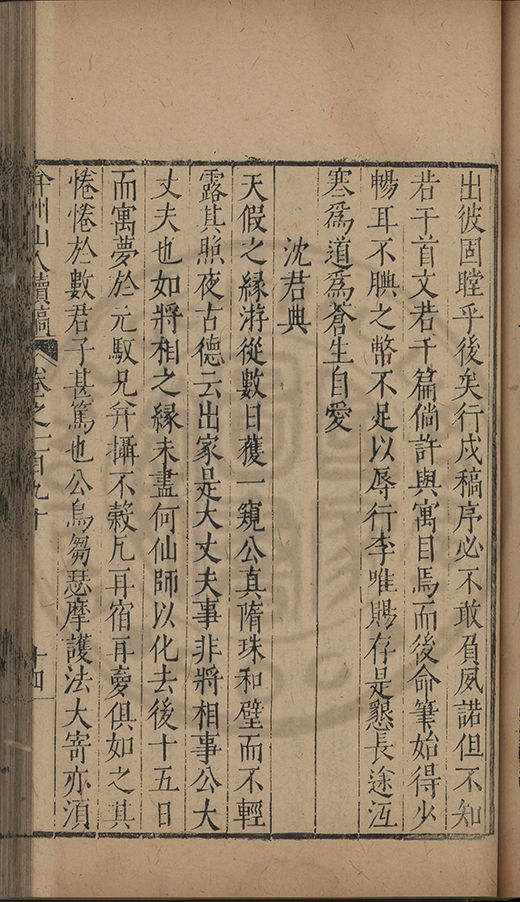 出彼固瞠乎後矣行戍稿序必不敢負夙諾但不知
若干首文若干篇倘許與寓目焉而後命筆始得少
暢耳不腆之幣不足以辱行李唯賜存是懇長途沍
寒為道為蒼生自愛
沈君典
天假之緣游從數日獲一窺公真隋珠和璧而不輕
露其照夜古德云出家是大丈夫事非將相事公大
丈夫也如將相之緣未盡何仙師以化去後十五日
而寓夢於元馭兄弁攝不穀凡耳宿耳夔俱如之其
惓惓於數君子甚篤也公烏芻瑟摩護法大寄亦須
弇州山人續稿 卷之一百九十 十四